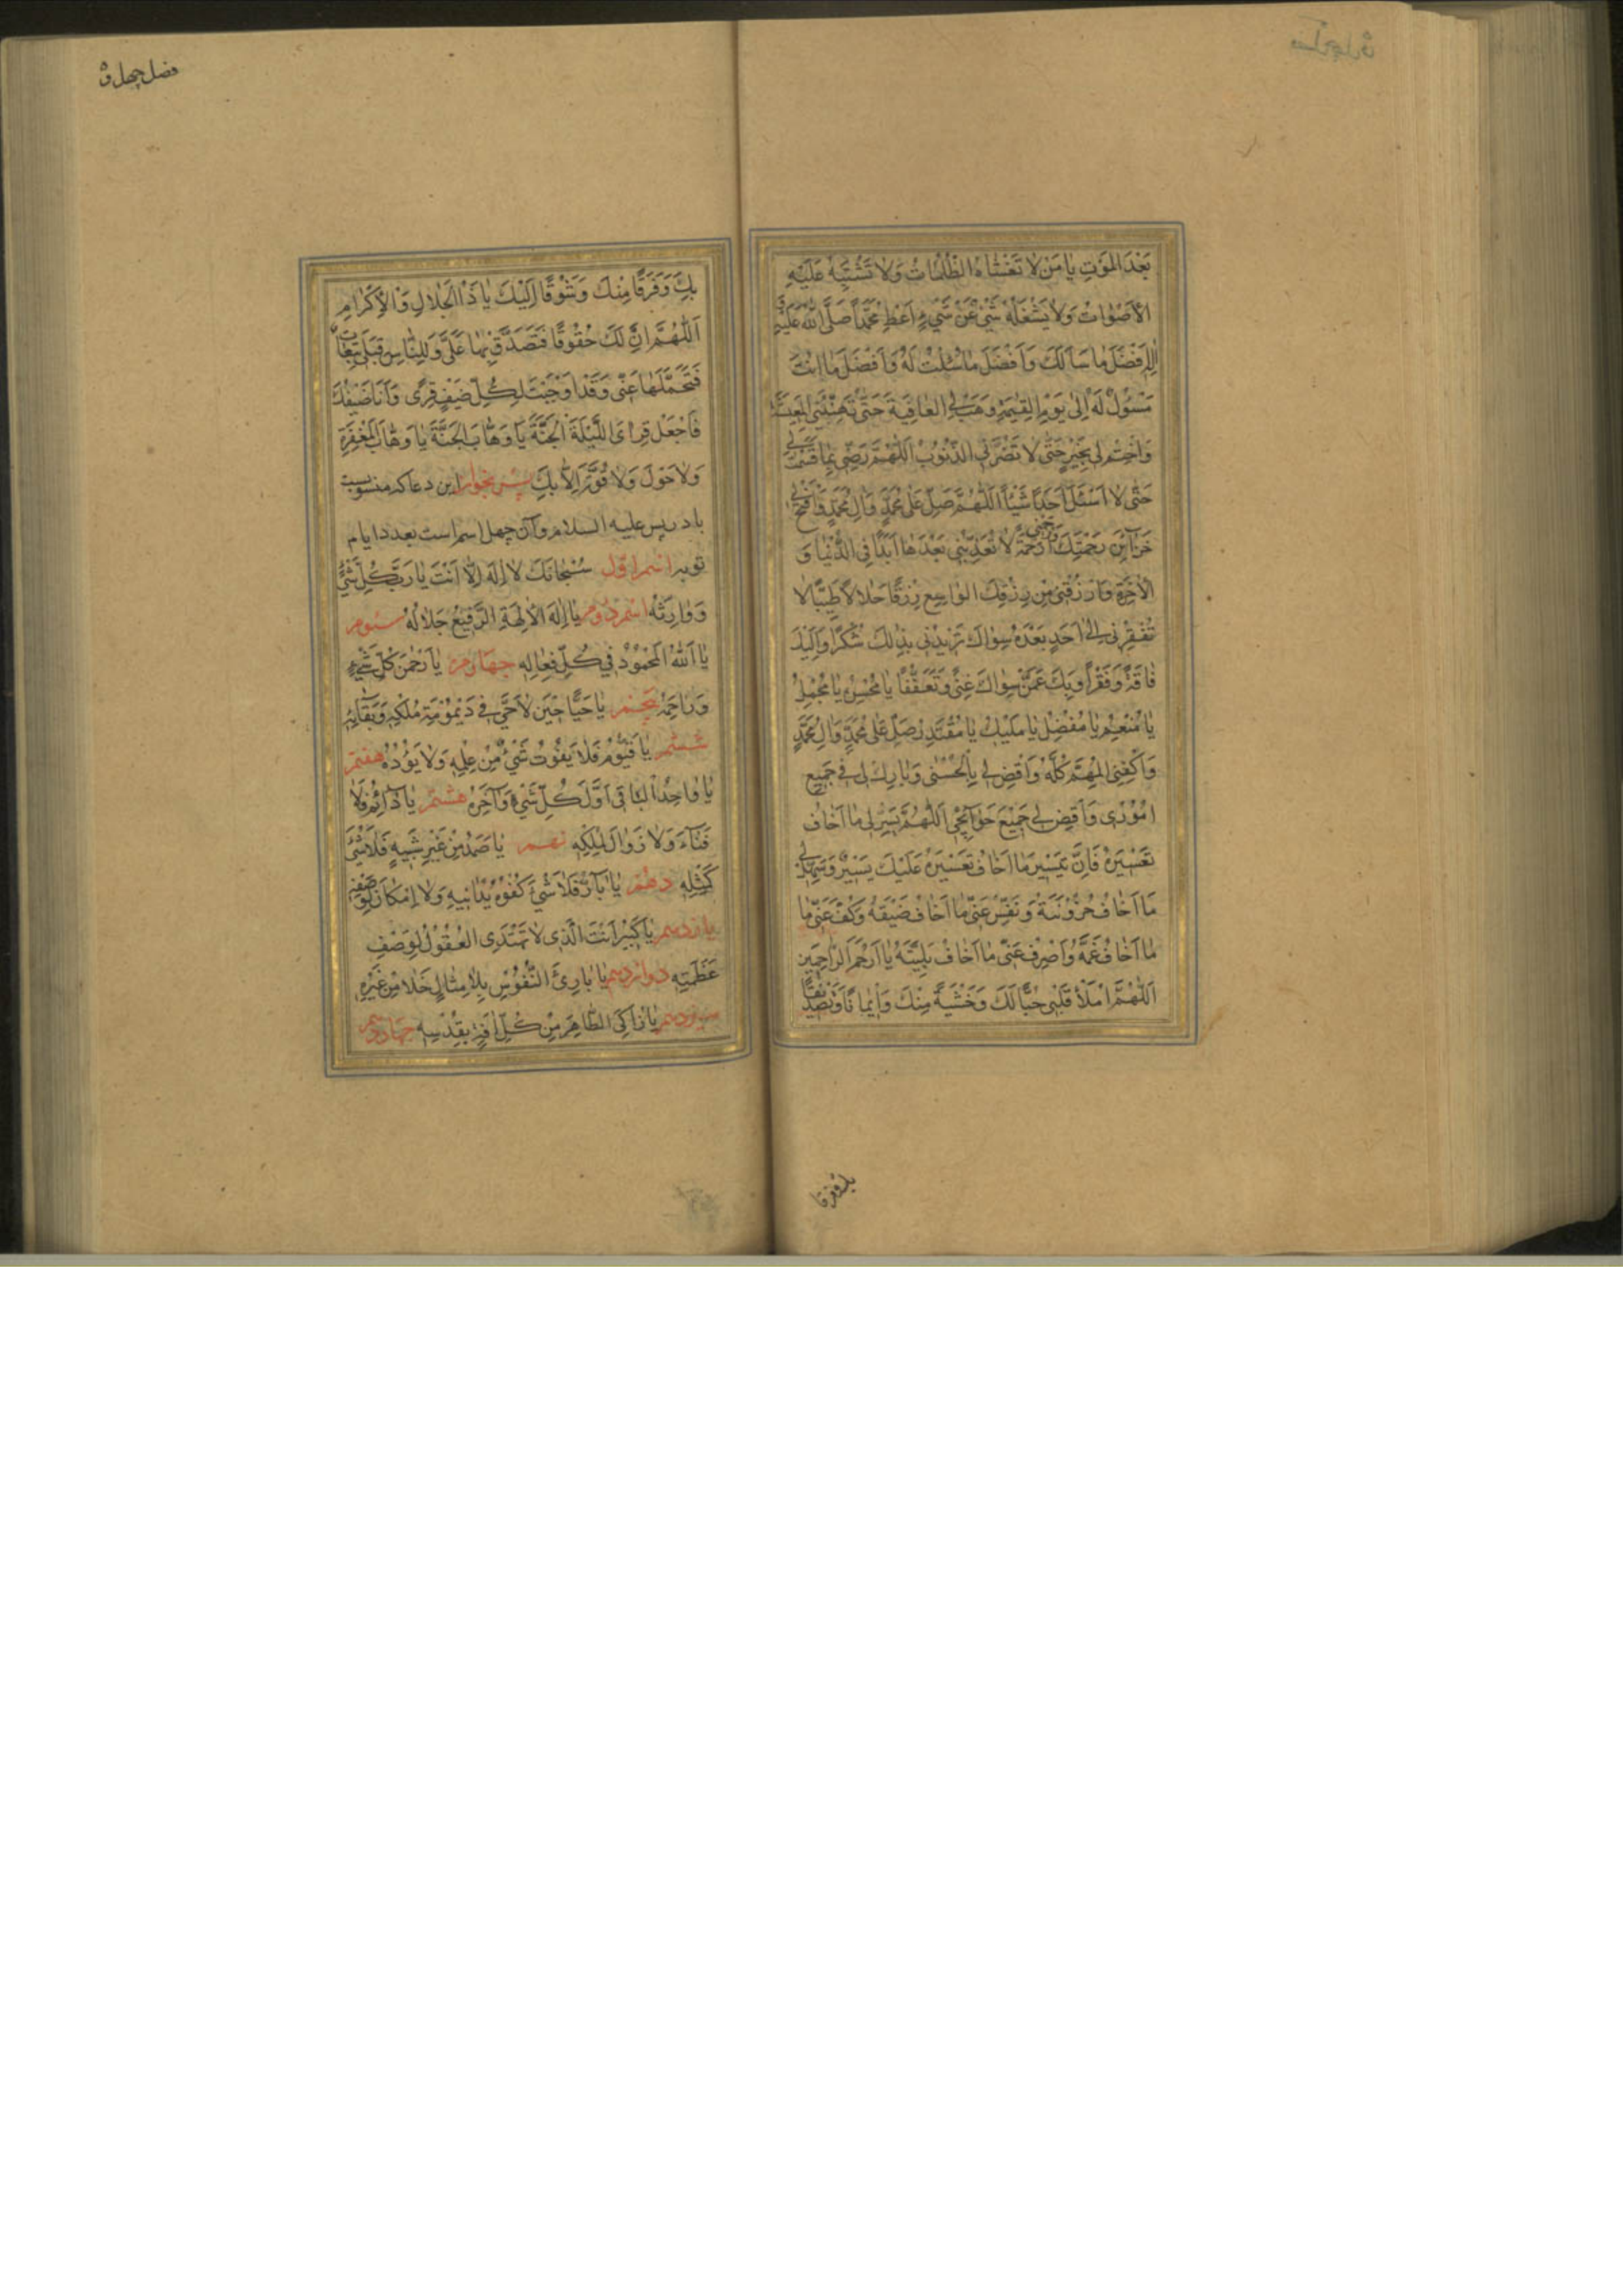 بَعْدَ الْمَوْتِ يَا مَنْ لَا تَغْشَاهُ الظُّلُمَاتُ وَلَا تَشْتَبِهُ عَلَيْهِ
الْأَصْوَاتُ وَلَا يَشْغَلُهُ شَيْءٌ عَنْ شَيْءٍ اَعْطِ مُحَمَّدًا صَلَّى اللهُ عَلَيْهِ وَ
اٰلِهِ اَفْضَلَ مَا سَاَلَكَ وَاَفْضَلَ مَا سُئِلْتَ لَهُ وَاَفْضَلَ مَا اَنْتَ
مَسْؤُلٌ لَهُ اِلَى يَوْمِ الْقِيٰمَةِ وَهَبْ لِيَ الْعَافِيَةَ حَتّٰى تُهَنِّئَنِي الْمَعِيشَةَ
وَاخْتِمْ لِي بِخَيْرٍ حَتّٰى لَا تَضُرَّنِي الذُّنُوبُ اَللّٰهُمَّ رَضِّنِي بِمَا قَسَمْتَ لِي
حَتّٰى لَا اَسْئَلَ اَحَدًا شَيْئًا اَللّٰهُمَّ صَلِّ عَلَى مُحَمَّدٍ وَاٰلِ مُحَمَّدٍ وَافْتَحْ لِي
خَزَآئِنَ رَحْمَتِكَ وَارْحَمْنِي رَحْمَةً لَا تُعَذِّبُنِي بَعْدَهَا اَبَدًا فِي الدُّنْيَا وَ
الْاٰخِرَةِ وَارْزُقْنِي مِنْ رِزْقِكَ الْوَاسِعِ رِزْقًا حَلَالًا طَيِّبًا لَا
تُفْقِرُنِي اِلَى اَحَدٍ بَعْدَهُ سِوَاكَ تَزِيدُنِي بِذٰلِكَ شُكْرًا وَاِلَيْكَ
فَاقَةً وَفَقْرًا وَبِكَ عَمَّنْ سِوَاكَ غِنًى وَتَعَفُّفًا يَا مُحْسِنُ يَا مُجْمِلُ
يَا مُنْعِمُ يَا مُفْضِلُ يَا مَلِيكُ يَا مُقْتَدِرُ صَلِّ عَلَى مُحَمَّدٍ وَاٰلِ مُحَمَّدٍ
وَاكْفِنِي الْمُهِمَّ كُلَّهُ وَاقْضِ لِي بِالْحُسْنٰى وَبَارِكْ لِي فِي جَمِيعِ
اُمُورِي وَاقْضِ لِي جَمِيعَ حَوَآئِجِي اَللّٰهُمَّ يَسِّرْ لِي مَا اَخَافُ
تَعْسِيرَهُ فَاِنَّ تَيْسِيرَ مَا اَخَافُ تَعْسِيرَهُ عَلَيْكَ يَسِيرٌ وَسَهِّلْ لِي
مَا اَخَافُ حُزُونَتَهُ وَنَفِّسْ عَنِّي مَا اَخَافُ ضَيْقَهُ وَكُفَّ عَنِّي مَا
مَا اَخَافُ غَمَّهُ وَاصْرِفْ عَنِّي مَا اَخَافُ بَلِيَّتَهُ يَا اَرْحَمَ الرَّاحِمِينَ
اَللّٰهُمَّ امْلَأْ قَلْبِي حُبًّا لَكَ وَخَشْيَةً مِنْكَ وَاِيمَانًا وَتَصْدِيقًا
بك وفرقا
فضل چهل ق
بِكَ وَفَرَقًا مِنْكَ وَشَوْقًا اِلَيْكَ يَا ذَا الْجَلَالِ وَالْاِكْرَامِ
اَللّٰهُمَّ اِنَّ لَكَ حُقُوقًا فَتَصَدَّقْ بِهَا عَلَيَّ وَلِلنَّاسِ قِبَلِي تَبِعَاتٌ
فَتَحَمَّلْهَا عَنِّي وَقَدْ اَوْجَبْتَ لِكُلِّ ضَيْفٍ قِرًى وَاَنَا ضَيْفُكَ
فَاجْعَلْ قِرَايَ اللَّيْلَةَ الْجَنَّةَ يَا وَهَّابَ الْجَنَّةَ يَا وَهَّابَ الْمَغْفِرَةِ
وَلَا حَوْلَ وَلَا قُوَّةَ اِلَّا بِكَ پس بخواند این دعا که منسوبست
بادریس علیه السلام و آن چهل اسم است بعدد ایام
توبه اسم اول سُبْحَانَكَ لَا اِلٰهَ اِلَّا اَنْتَ يَا رَبَّ كُلِّ شَيْءٍ
وَوَارِثَهُ اسم دوم يَا اِلٰهَ الْاٰلِهَةِ الرَّفِيعُ جَلَالُهُ سیوم
يَا اَللهُ الْمَحْمُودُ فِي كُلِّ فِعَالِهِ چهارم يَا رَحْمٰنَ كُلِّ شَيْءٍ
وَرَاحِمَهُ پنجم يَا حَيًّا حِينَ لَا حَيَّ فِي دَيْمُومَةِ مُلْكِهِ وَبَقَآئِهِ
ششم يَا قَيُّومُ فَلَا يَفُوتُ شَيْءٌ مِنْ عِلْمِهِ وَلَا يَؤُدُهُ هفتم
يَا وَاحِدُ الْبَاقِي اَوَّلَ كُلِّ شَيْءٍ وَاٰخِرَهُ هشتم يَا دَآئِمُ فَلَا
فَنَآءَ وَلَا زَوَالَ لِمُلْكِهِ نهم يَا صَمَدُ مِنْ غَيْرِ شَبِيهٍ فَلَا شَيْءَ
كَمِثْلِهِ دهم يَا بَآرُّ فَلَا شَيْءَ كُفْوُهُ يُدَانِيهِ وَلَا اِمْكَانَ لِوَصْفِهِ
یازدهم يَا كَبِيرُ اَنْتَ الَّذِي لَا تَهْتَدِي الْعُقُولُ لِوَصْفِ
عَظَمَتِهِ دوازدهم يَا بَارِئَ النُّفُوسِ بِلَا مِثَالٍ خَلَا مِنْ غَيْرِهِ
سیزدهم يَا زَاكِي الطَّاهِرَ مِنْ كُلِّ اٰفَةٍ بِقُدْسِهِ چهاردهم